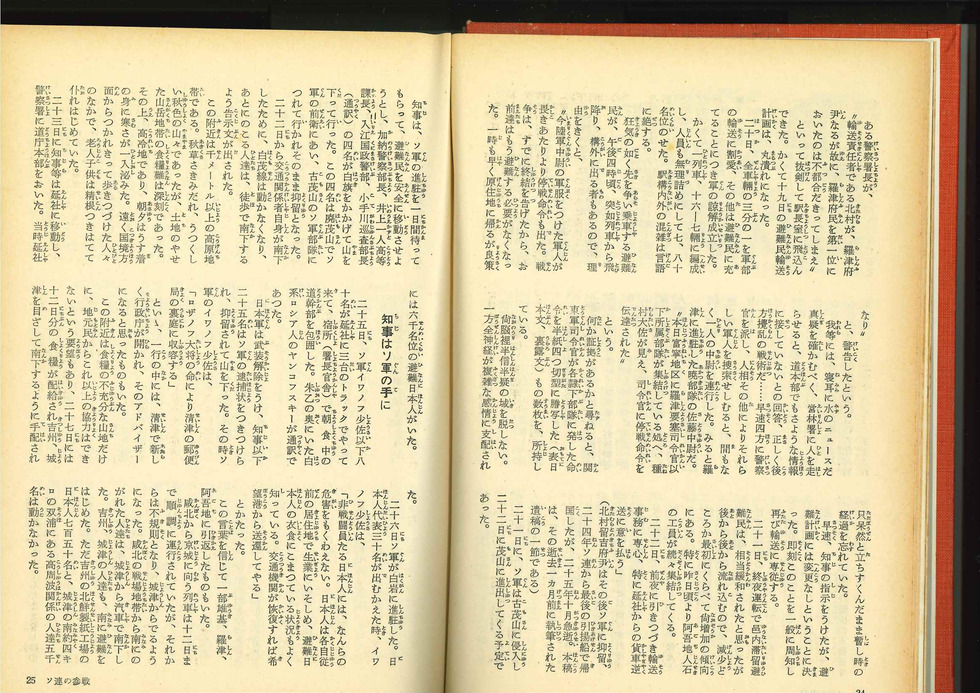 ある警察署長が、
〝輸送責任者である北村が、羅津府
尹なるが故に、羅津府民を第一位に
おいたのは不都合だきってしまえ〟
といって抜剣して駅長室に飛込ん
できた。かくて十九日の避難民輸送
計画は、丸潰れになった。
二十日、全車輛の三分の一を軍部
の輸送に割愛、その他は避難民に充
てることにつき軍の諒解成立した。
かくて一列車、十六ー七輛に編成
し、人員も無理詰めにして七、八十
名位のせた。駅構内外の混雑は言語
に絶する。
狂気の如く先を争い乗車する避難
民が、午後四時頃、突如列車から飛
降り、構外に出る者もあるので、理
由をきくと、
〝今陸軍中尉の軍服をつけた軍人が
長きあたりより停戦命令も出た。戦
争は、すでに終結を告げたから、お
前達はもう避難する必要がなくなっ
た。一時も早く原住地に帰るが良策
なり〟
と、警告したという。
我等には、寝耳に水のニュースだ
真疑を確かむべく、当林署に人を走
らせると、道本部でもさような情報
に接していないとの回答、正しく後
方攪乱の戦術だ……早速四方に警察
官を派し、山林其の他によりそれら
しい軍人を捜索せしむると、間もな
く一人の中尉を連行した。みると羅
津に進駐した暁部隊の佐藤中尉だ。
〝本日富寧地区に羅津要塞司令官以
下所属部隊が集結している処へ、種
村大佐が見え、司令官に停戦命令を
伝達された〟
という。
何か証拠があるかと尋ねると、関
東軍司令官名隷下部隊に発した命
令を半紙四つ切型に謄写した(表日
本文、裏露文)もの数枚を、所持し
ている。
尚脳裡半信半疑の域を脱しない。
一方全神経が複雑な感情に支配され
只呆然と立ちすくんだまま暫し時の
経過を忘れていた。
早速、知事の指示をうけたが、避
難計画には変更なしということに決
った。即刻このことを一般に周知し
再び輸送に専従する。
二十一日、終夜運転で邑内滞留避
難民は、相当緩和されたと思ったが
後から後から流れ込むので、減少ど
ころか最初にくらべて尚増加の傾向
にある。特に昨日頃より阿吾地人石
の工員が続々集結してくる。
二十二日、前夜に引きつづき輸送
事務に専心、特に延社からの貨車逆
送に意を払う」
(北村留吉府尹はその後ソ軍に抑留、
二十四年ソ連から最後の引揚船で帰
国したが、二十五年十月急逝。本稿
は、その逝去一カ月前に執筆された
遺稿の一節である)
二十一日に、ソ軍は古茂山に侵入し
二十二日に茂山に進出してくる予定で
あった。
24
知事は、ソ軍の進駐を一日間待って
もらって、避難民を安全に移動させよ
うとし、加納警察部長、井上一人高等
課長、入江国政警部、小手川巡査部長
(通訳)の四名が白旗をかかげて山を
下って行った。この四名は廃茂山でソ
軍の前衛にあい、古茂山のソ軍部隊に
つれて行かれそのまま抑留となった。
二十二日から交通関係者自身が南下
したために、白茂線は動かなくなり、
あとにのこる人達は、徒歩で南下する
よう告示文が出された。
この附近は千メートル以上の高原地
帯である。秋草さきみだれ、うつくし
い秋色の山々であったが、土地のやせ
た山岳地帯の食糧難は深刻であった。
その上、高冷地でもあり、朝夕はうす着
の身に寒さが一入泌みた。遠く国境方
面からつかれきって歩きつづけた人々
のなかで、老人子供は精根つきはてて
仆れはじめていた。
二十三日に知事等は延社に移動し、
警察署に道庁本部をおいた。当時延社
には六千名位の避難日本人がいた。
知事はソ軍の手に
二十五日、ソ軍イワノフ少佐以下八
十名が延社に三台のトラックでやって
来て、宿所(署長官舎)で朝食中の
道幹部を包囲した。朱乙の奥にいた白
系ロシア人のヤンコフスキーが通訳で
あった。
日本軍は武装解除をうけ、知事以下
二十五名はソ軍の逮捕状をつきつけら
れ、抑留されて山を下った。その時ソ
軍のイワノフ少佐は、
「ロザノフ大将の命により清津の郵便
局の裏庭に収容する」
といい、一行の中には、清津で新し
く行政庁が開かれ、そのアドバイザー
になると思ったものもいた。
この附近は食糧の不十分な山地だけ
に、地元民からこれ以上の協力はでき
ないという要望もあり、二十七日には
十二日分の食糧が配給され吉州、城
津を目ざして南下するように手配され
た。
二十六日ソ軍が延岩に進駐した。日
本人代表三十名が出むかえた時、イワ
ノフ少佐は、
「非戦闘員たる日本人には、なんらの
危害をもくわえない。日本人は各自従
前の居住地で生業にいそしめ、避難日
本人の衣食にこまっている状況もよく
知っている。交通機関が恢復すれば希
望港から送還してやる」
とかたった。
この言葉を信じて一部雄基、羅津、
阿吾地に引返したものもいた。
咸北から京城に向う列車は十二日ま
で順調に運行されていたが、それか
らは不規則となり、城津からでるよう
になった。咸北の戦場地帯から南にの
がれた人達は、城津から汽車で南下し
た。吉州、城津の人達も、南に避難を
はじめた。ただ吉州の北鮮製紙工場の
日本人七百五十名と、城津の南約四キ
ロの双浦にある高周波関係の人達五千
名は動かなかった。
25 ソ連の参戦